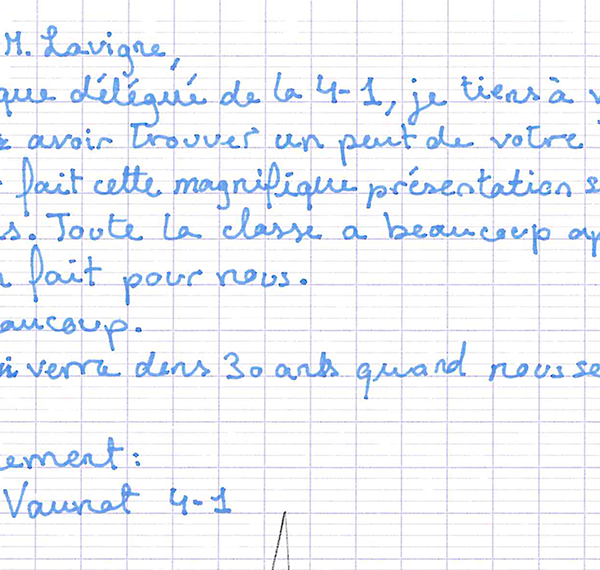 M. Lavigne,
que délégué de la 4-1, je tiens à v
avoir trouver un peut de votre
fait cette magnifique présentation s
s. Toute la classe a beaucoup ap
fait pour nous.
aucoup.
verra dans 30 ans quand nous se
ement:
Vaunat 4-1